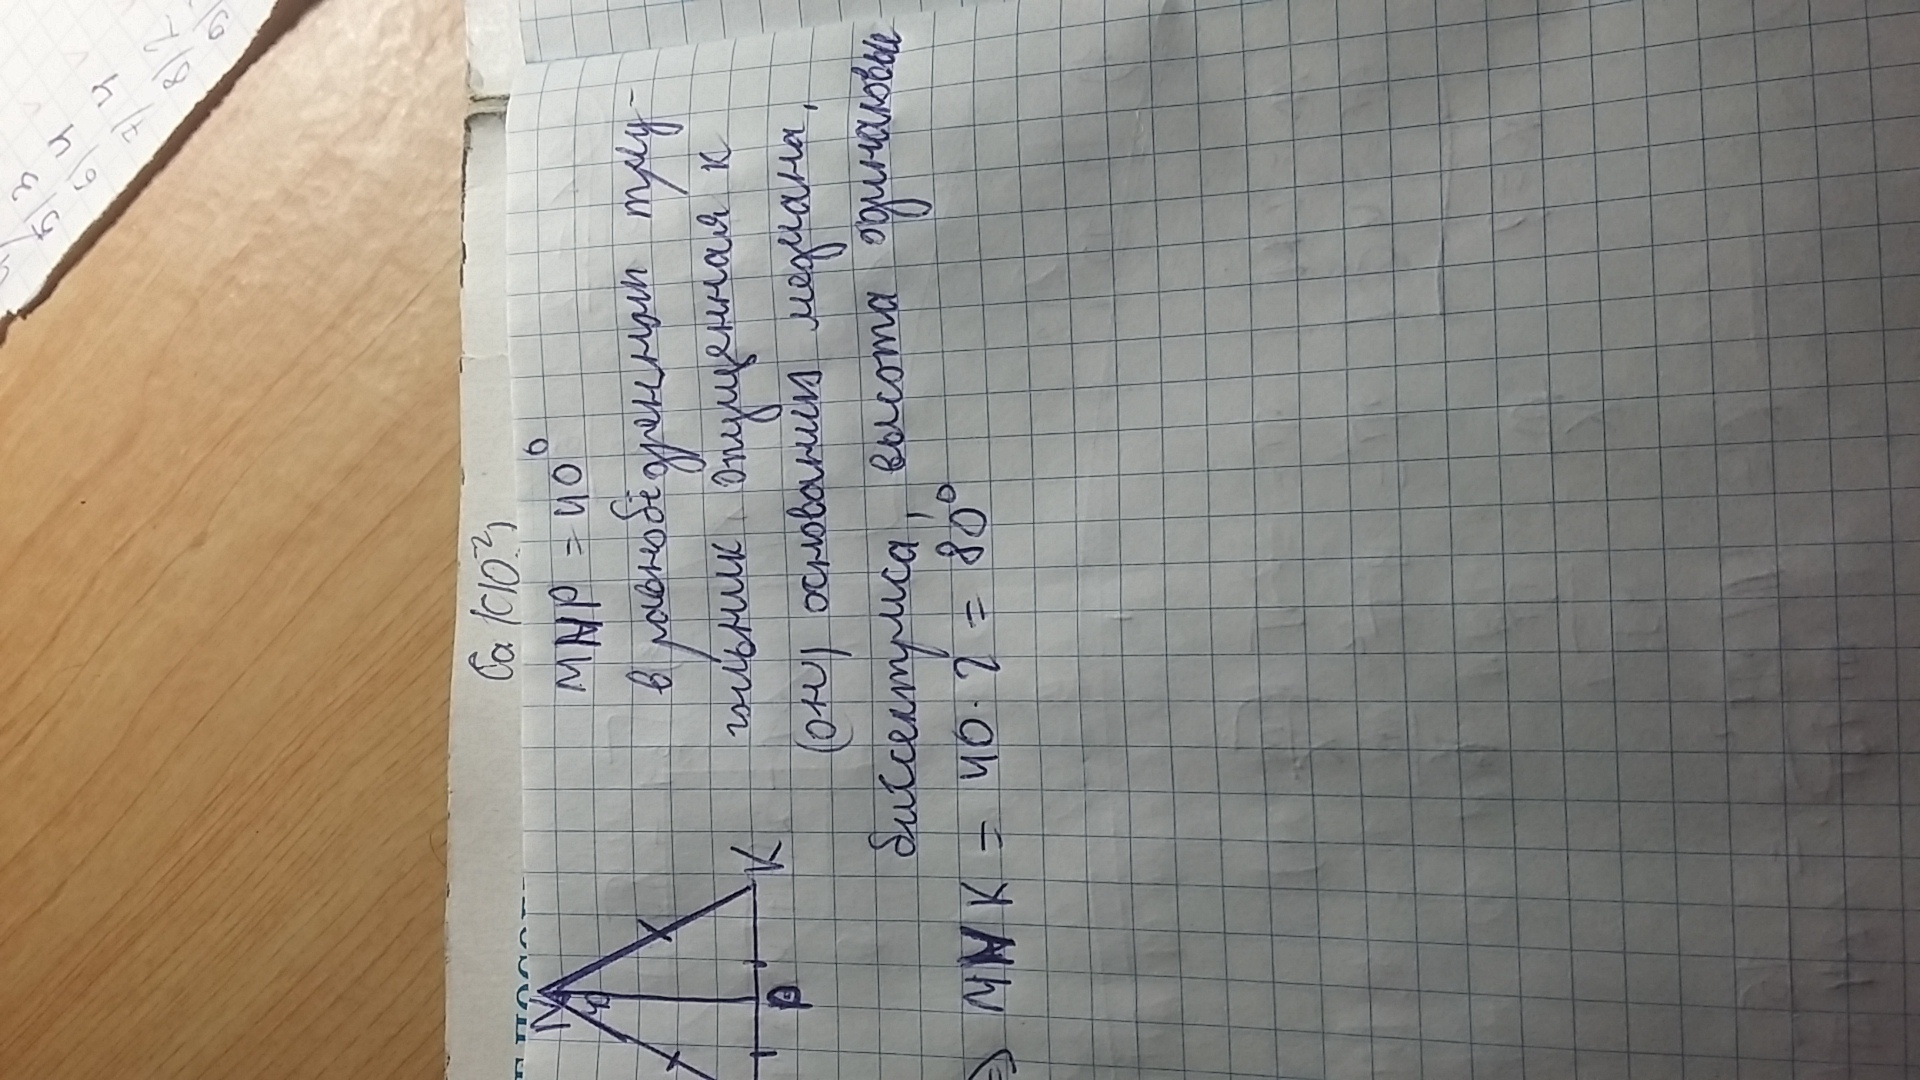 Ca(ClO₂)₂
MNP = 40°
в равнобедренныи треу-
гольник опущенная к
(он) основании медиана,
биссектриса, высота одинаковые
N
40
K
P
⇒ MNK = 40 · 2 = 80°
5/ 3
6/ 4
7/ 4
8/ 2
9/